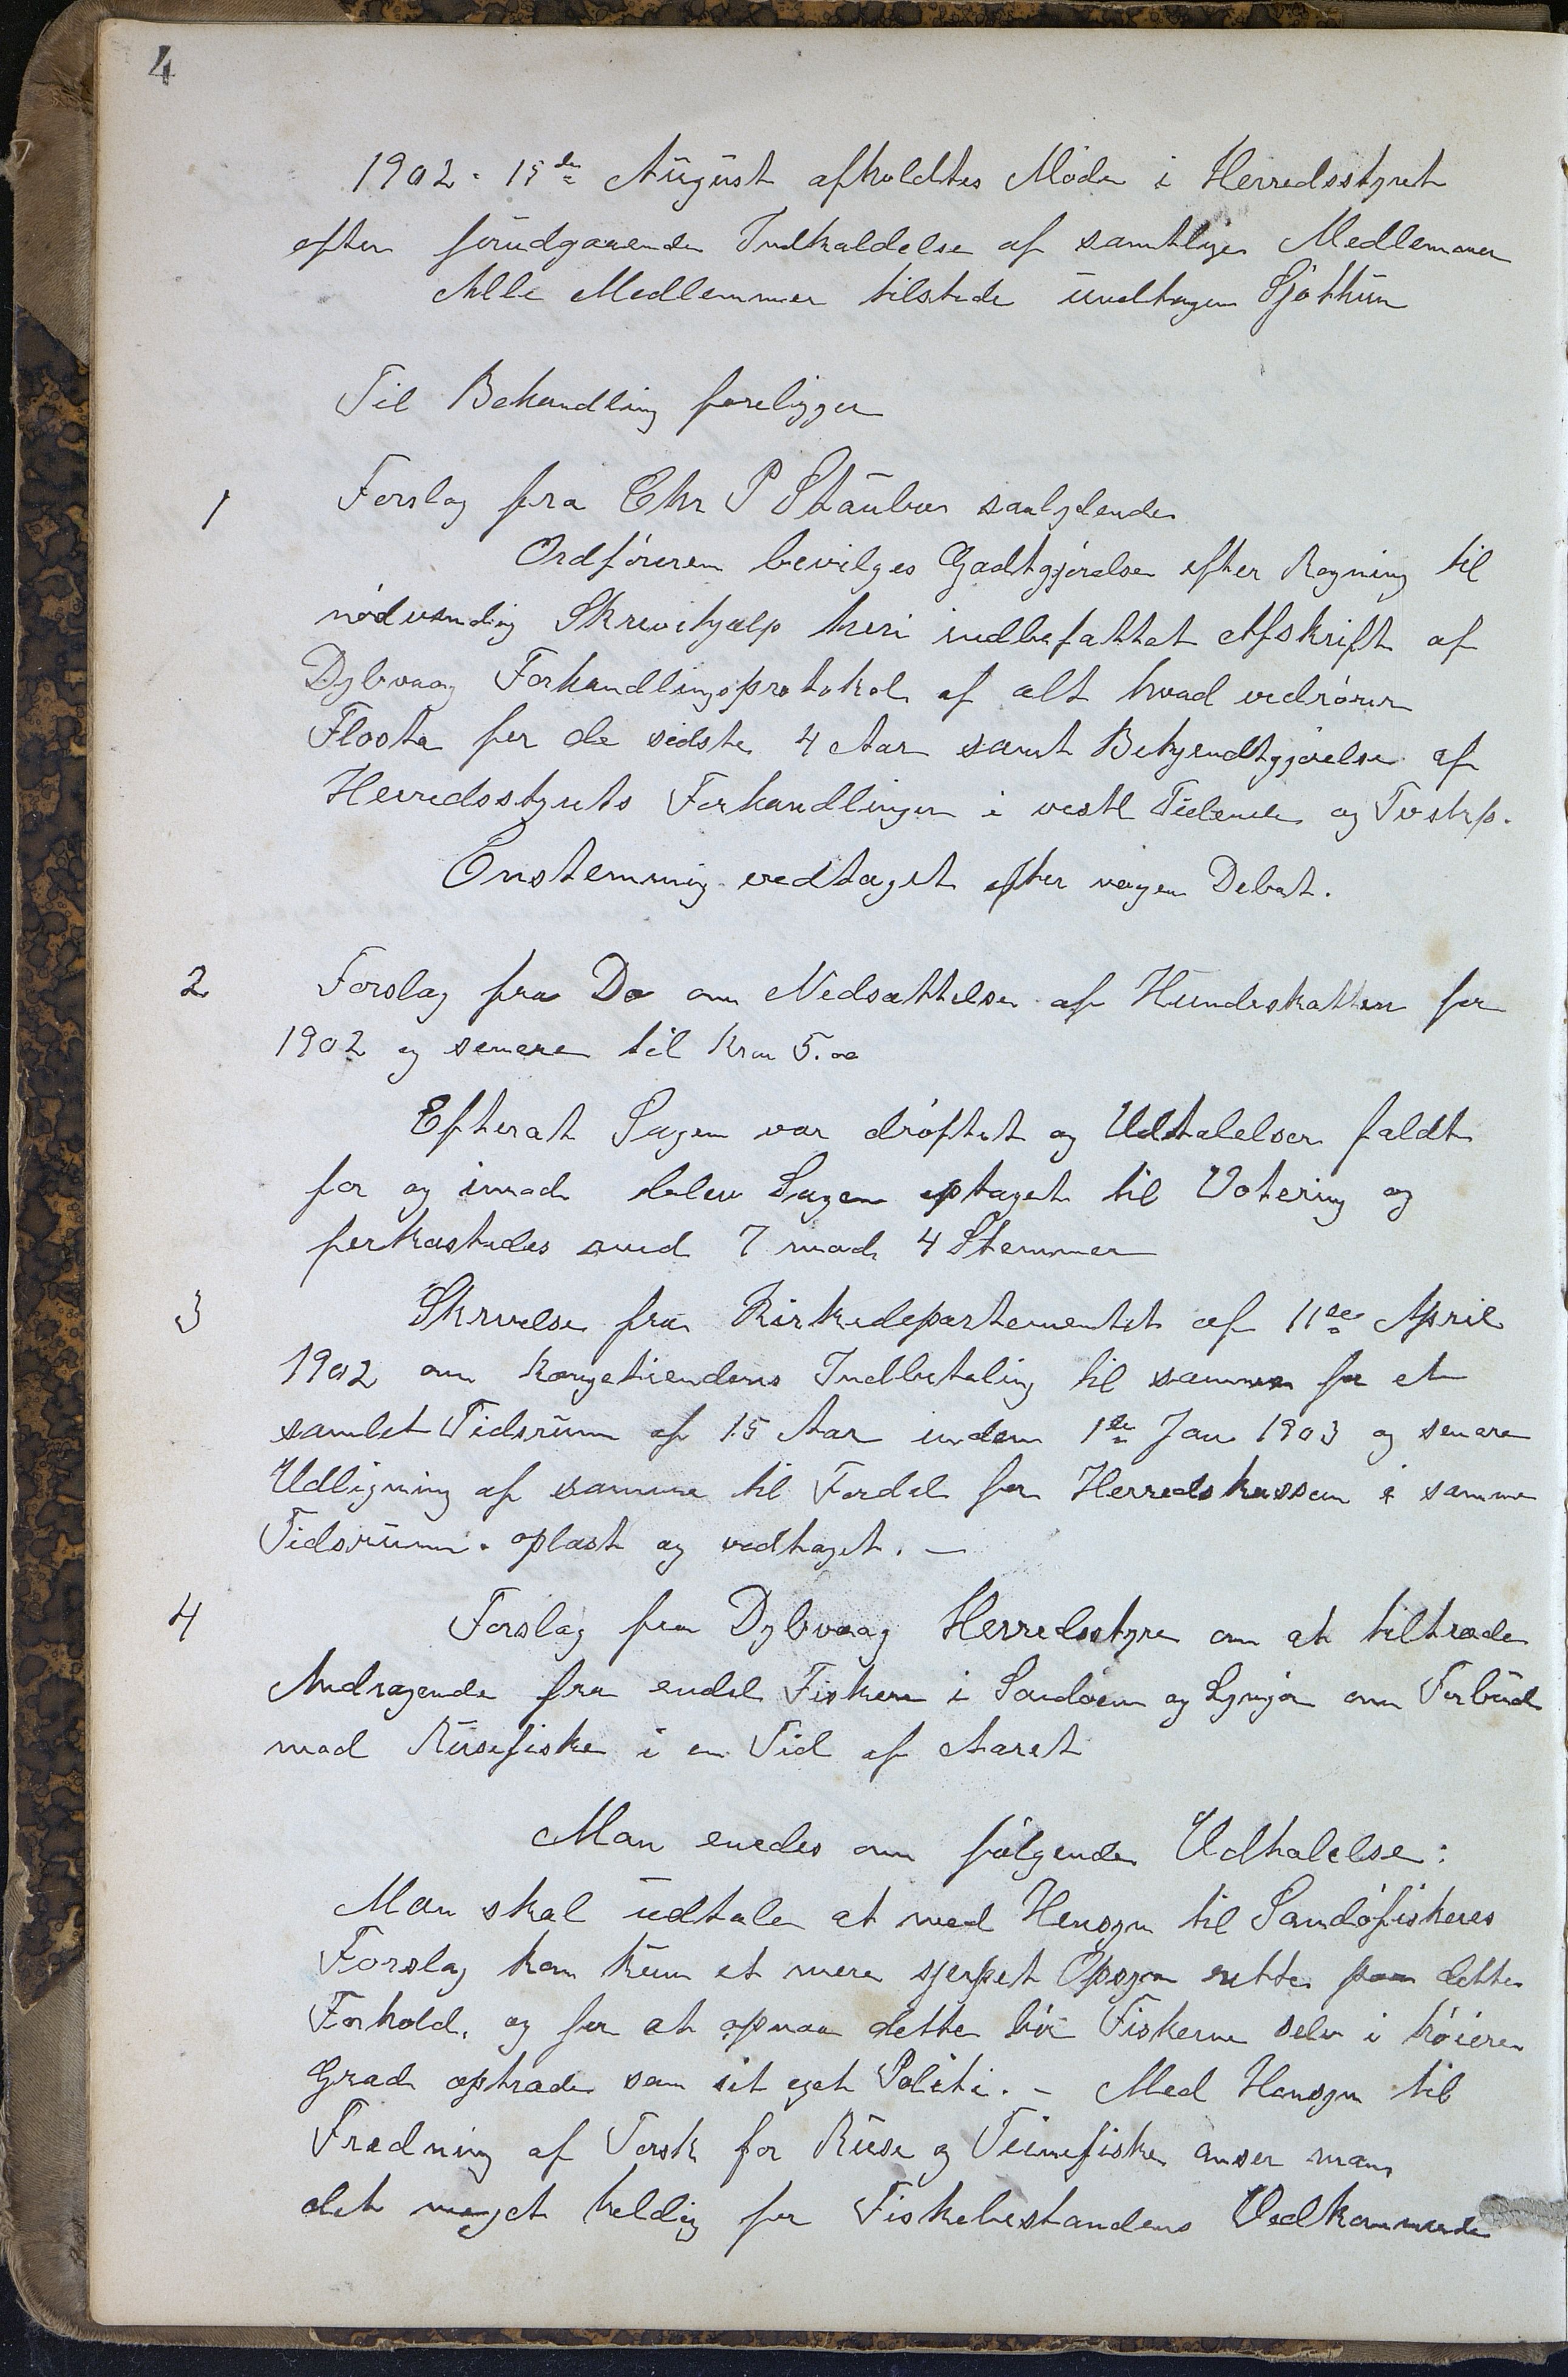 4
1902 . 15de August afholdtes Møde i Herredsstyret
efter forudgaaende Indkaldelse af samtlige Medlemmer
Alle Medlemmer tilstede undtagen Sjøthun
Til Behandling foreligger
1 Forslag fra Chr P Staubø saalydende
Ordføreren bevilges Godtgjørelse efter Regning til
nødvendig Skrivehjælp heri indbefattet Afskrift af
Dybvaag Forhandlingsprotokol af alt hvad vedrører
Flosta for de sidste 4 Aar samt Bekjendtgjørelse af
Herredsstyrets Forhandlinger i vestl Tidende og Tvstrp.
Enstemmig vedtaget efter nogen Debat.
2 Forslag fra Do om Nedsættelse af Hundeskatten for
1902 og senere til Kron 5.00
Efterat Sagen var drøftet og Udtalelser faldt
for og imod blev Sagen optaget til Votering og
forkastedes med 7 mod 4 Stemmer
3 Skrivelse fra Kirkedepartementet af 11te April
1902 om Kongetiendens Indbetaling til samme for et
samlet Tidsrum af 15 Aar inden 1te Jan 1903 og senere
Udligning af samme til Fordel for Herredskassen i samme
Tidsrum . oplæst og vedtaget. —
4 Forslag fra Dybvaag Herredsstyre om at tiltræde
Andragende fra endel Fiskere i Sandøen og Lyngør om Forbud
mod Rusefiske i en Tid af Aaret
Man enedes om følgende Udtalelse:
Man skal udtale at med Hensyn til Sandøfiskeres
Forslag kan kun et mere sjerpet Opsyn rette paa dette
Forhold, og for at opnaa dette bør Fiskerne selv i høiere
Grad optræde som sit eget Politi. – Med Hensyn til
Fredning af Torsk for Ruse og Teinefiske anser man
det meget heldig for Fiskebestandens Vedkommende